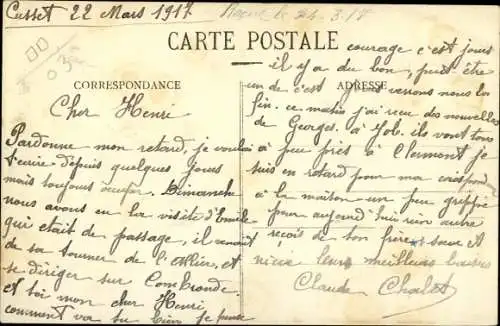 Cusset 22 Mars 1917
Reçue le 24-3-17
CARTE POSTALE
CORRESPONDANCE
ADRESSE
Cher Henri
Pardonne mon retard, je voulai
t'ecrire depuis quelques jours
mais toujours occupé. Dimanche
nous avons eu la visite d'Emile
qui etait de passage, il venait
de sa tourner de l'Allier, et
se diriger sur Combronde.
et toi mon cher Henri
comment va tu bien je pense
courage c'est jours
il y a du bon, peut-être
un de c'est jours venons nous la
fin. ce matin j'ai recu des nouvelles
de Georges. a Job. ils vont tous
a peu près a Clermont je
suis en retard pour ma correspond
a la maison un peu grippé
pour aujourd'hui rien autre
recois de bon frère soeur et
nièce leurs meilleurs baisers
Claude Chalet